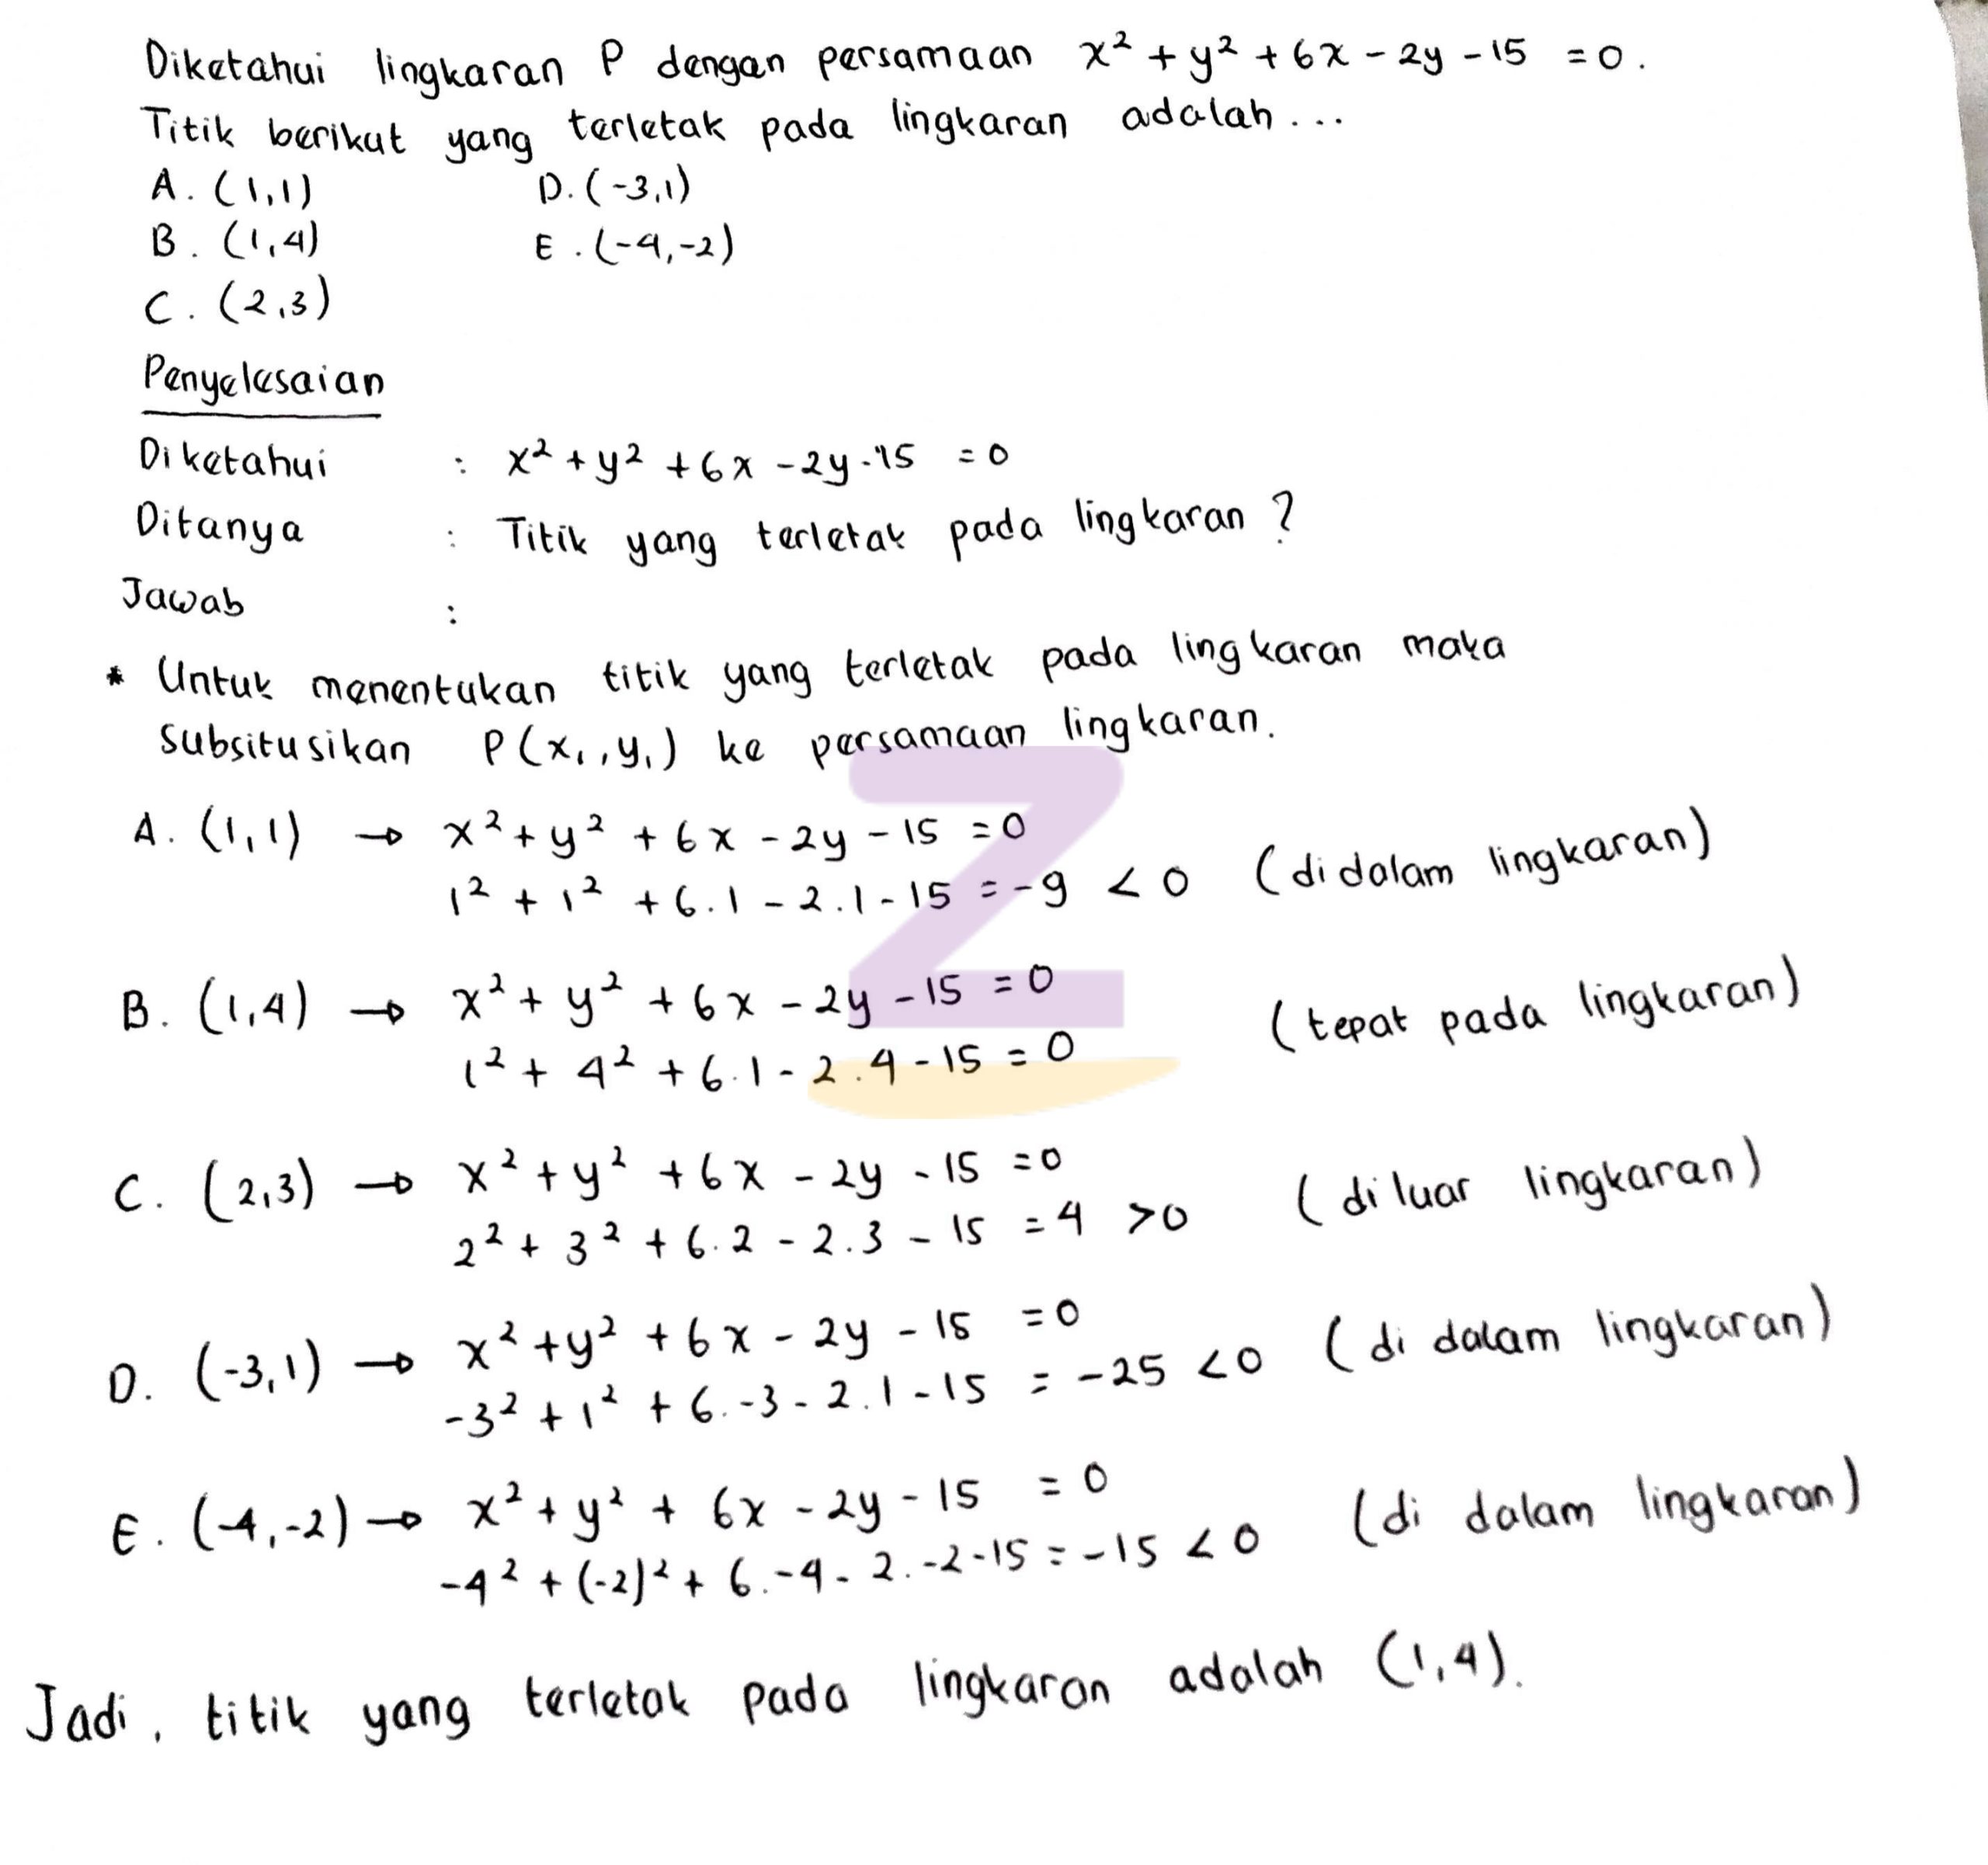 Diketahui lingkaran P dengan persamaan x² + y² + 6x - 2y - 15 = 0.
Titik berikut yang terletak pada lingkaran adalah ...
A. (1,1) D. (-3,1)
B. (1,4) E. (-4,-2)
C. (2,3)
Penyelesaian
Diketahui : x² + y² + 6x - 2y - 15 = 0
Ditanya : Titik yang terletak pada lingkaran ?
Jawab :
* Untuk menentukan titik yang terletak pada lingkaran maka
subsitusikan P(x₁,y₁) ke persamaan lingkaran.
A. (1,1) → x² + y² + 6x - 2y - 15 = 0
1² + 1² + 6.1 - 2.1 - 15 = -9 < 0 (di dalam lingkaran)
B. (1,4) → x² + y² + 6x - 2y - 15 = 0
1² + 4² + 6.1 - 2.4 - 15 = 0 (tepat pada lingkaran)
C. (2,3) → x² + y² + 6x - 2y - 15 = 0
2² + 3² + 6.2 - 2.3 - 15 = 4 > 0 (di luar lingkaran)
D. (-3,1) → x² + y² + 6x - 2y - 15 = 0
-3² + 1² + 6.-3 - 2.1 - 15 = -25 < 0 (di dalam lingkaran)
E. (-4,-2) → x² + y² + 6x - 2y - 15 = 0
-4² + (-2)² + 6.-4 - 2.-2 - 15 = -15 < 0 (di dalam lingkaran)
Jadi, titik yang terletak pada lingkaran adalah (1,4).